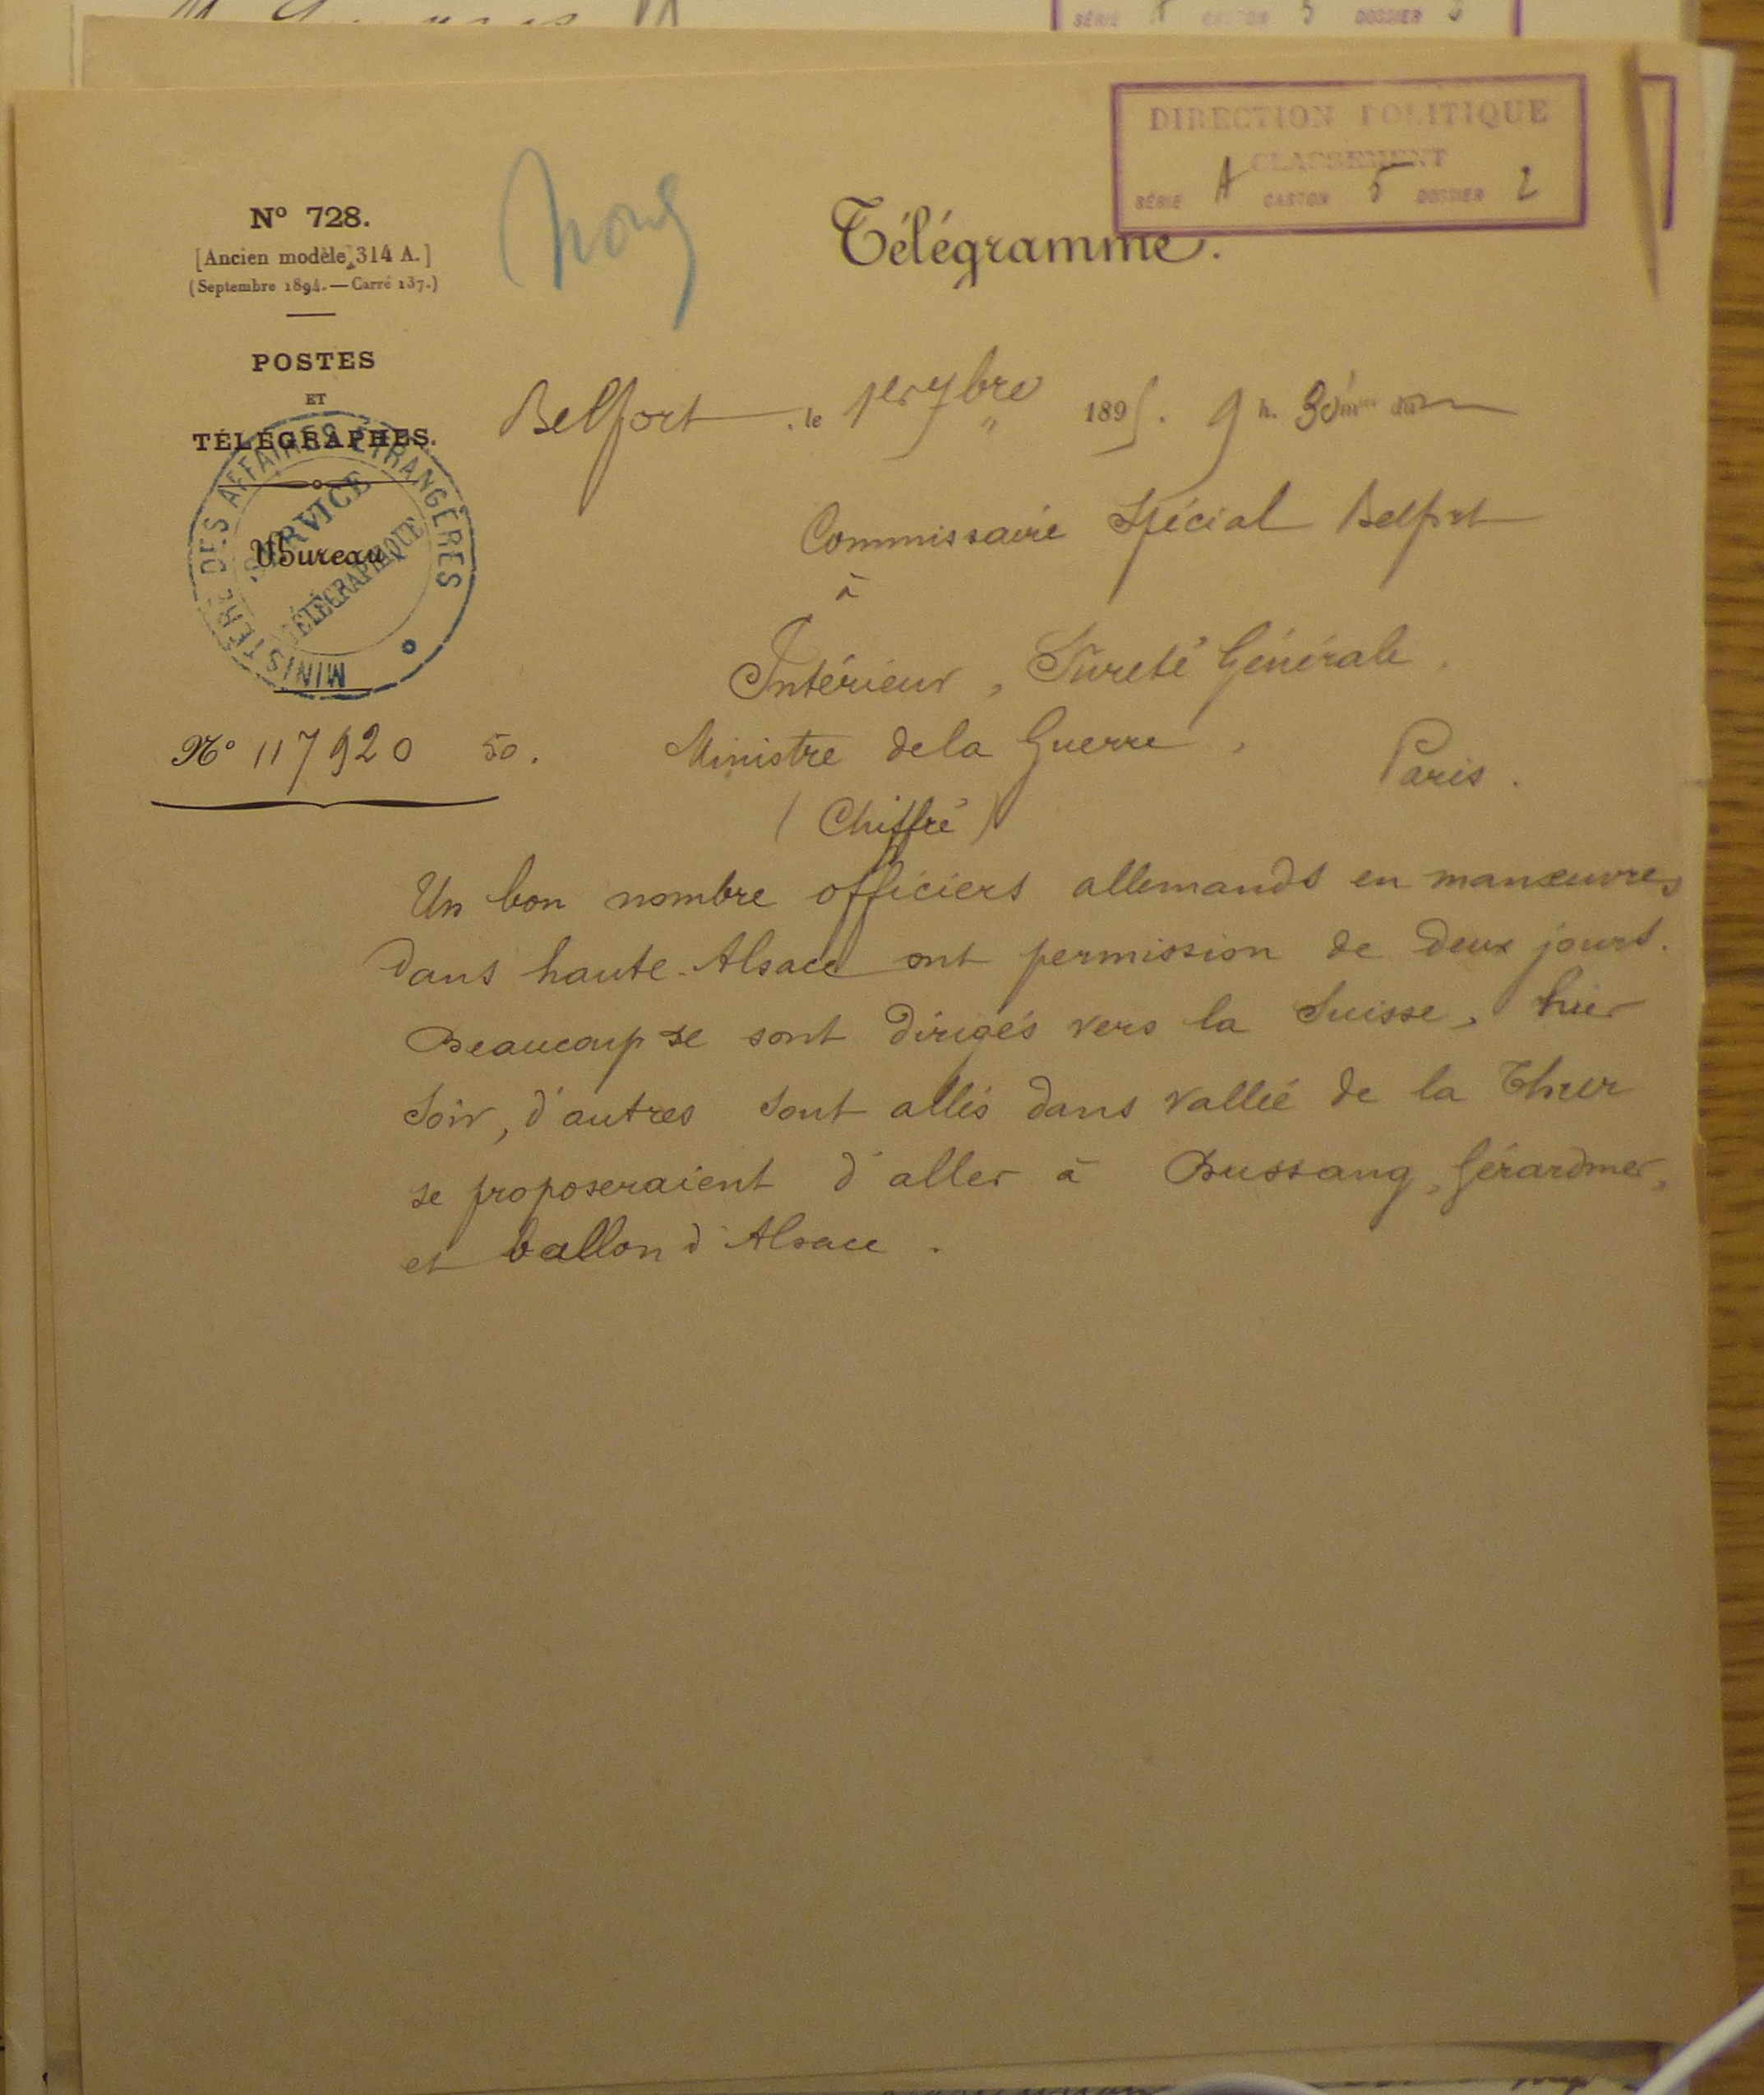 DIRECTION POLITIQUE
CLASSEMENT
SÉRIE A CARTON 5 DOSSIER 2
Nº 728.
[Ancien modèle 314 A.]
(Septembre 1894. — Carré 137.)
Télégramme.
POSTES
ET
TÉLÉGRAPHES.
Bureau
MINISTÈRE DES AFFAIRES ÉTRANGÈRES
SERVICE
TÉLÉGRAPHIQUE
Belfort, le 1er 7bre 1895. 9 h. 30 m
Commissaire Spécial Belfort
à
Intérieur, Sureté Générale,
Nº 117920 50. Ministre de la Guerre, Paris.
(Chiffré)
Un bon nombre officiers allemands en manœuvres
dans haute-Alsace ont permission de deux jours.
Beaucoup se sont dirigés vers la Suisse, hier
soir, d'autres sont allés dans vallée de la Thur
se proposeraient d'aller à Bussang, Gérardmer,
et ballon d'Alsace.